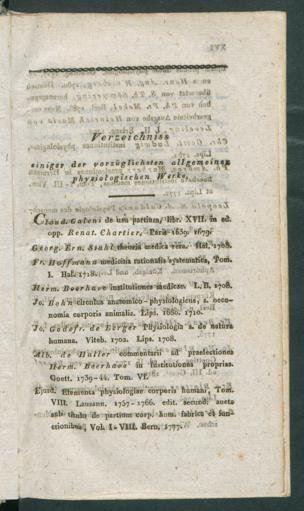 XVI
Verzeichniss
einiger der vorzüglichsten allgemeinen
physiologischen Werke,
Claud. Galeni de usu partium, libr. XVII. in ed.
opp. Renat. Chartier, Paris 1639. 1679.
Georg. Ern. Stahl theoria medica vera. Hal. 1708.
Fr. Hoffmann medicina rationalis systematica, Tom.
I. Hal. 1718.
Herm. Boerhave institutiones medicae. L. B. 1708.
Jo. Bohn circulus anatomico-physiologicus, s. oeco-
nomia corporis animalis. Lips. 1680. 1710.
Jo. Godofr. de Berger Physiologia s. de natura
humana. Viteb. 1702. Lips. 1708.
Alb. de Haller commentarii ad praelectiones
Herm. Boerhave in institutiones proprias.
Goett. 1739-44. Tom. VI.
Ejusd. Elementa physiologiae corporis humani, Tom.
VIII. Lausann. 1757-1766. edit. secund. aucta
sub titulo de partium corp. hum. fabrica et fun-
ctionibus, Vol. I-VIII. Bern, 1777.